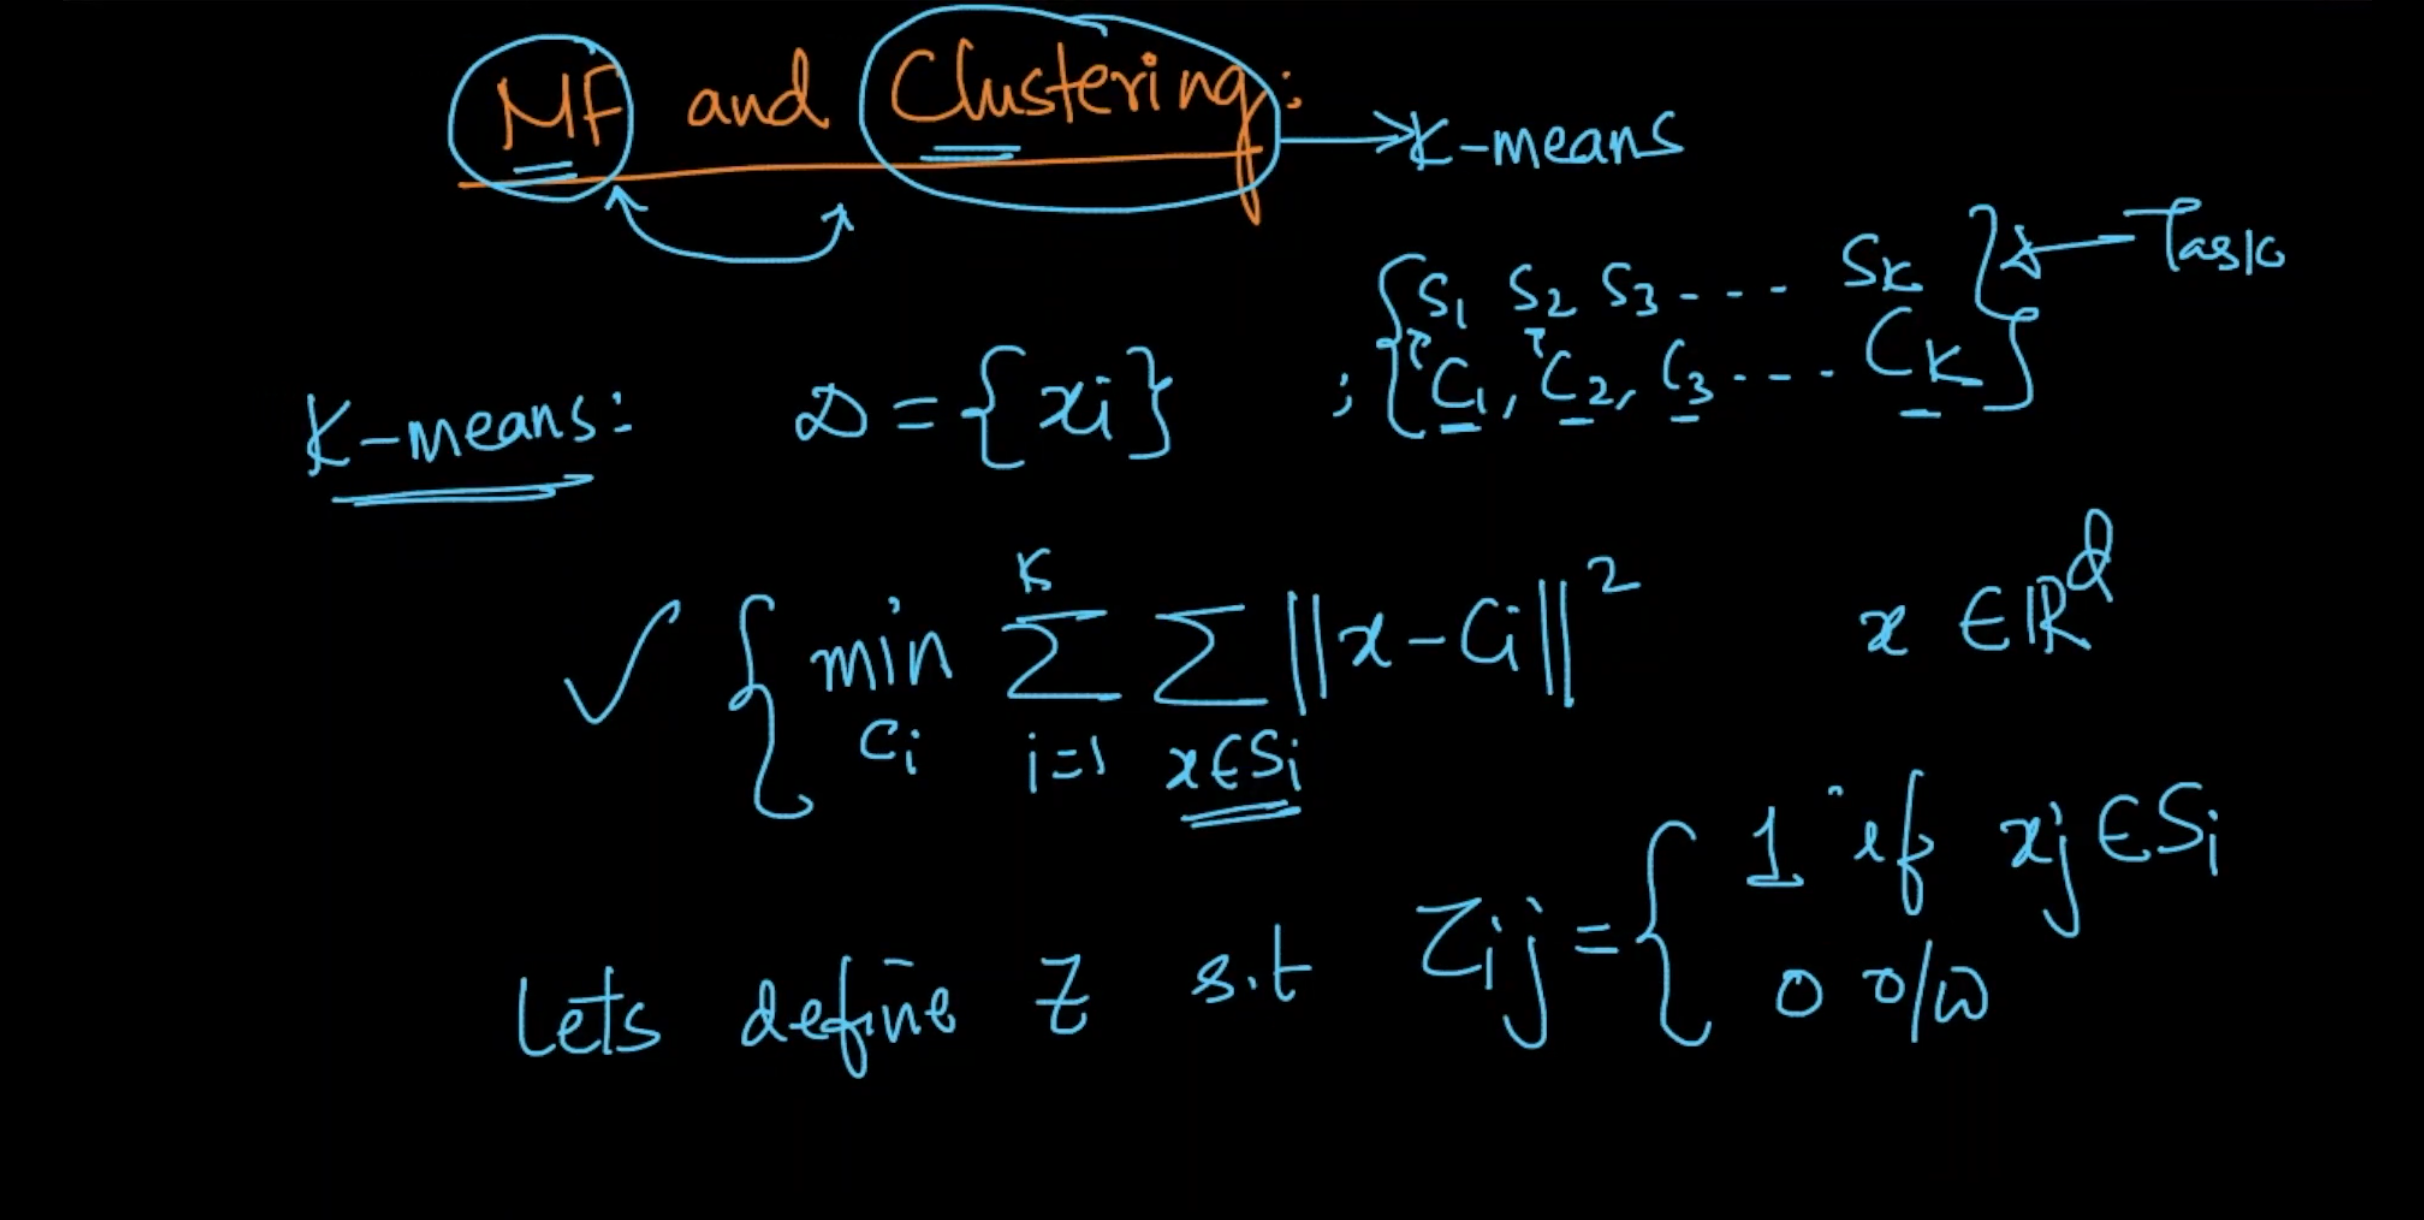 MF and Clustering:
→ K-means
S1 S2 S3 - - - SK } ← Task
K-means: D = {xi} ; {C1, C2, C3 - - - - CK}
✓ { min Σ Σ ||x - Ci||² x ∈ ℝᵈ
K
Ci i=1 x∈Si
Lets define Z s.t Zij = { 1 if xj ∈ Si
0 o/w